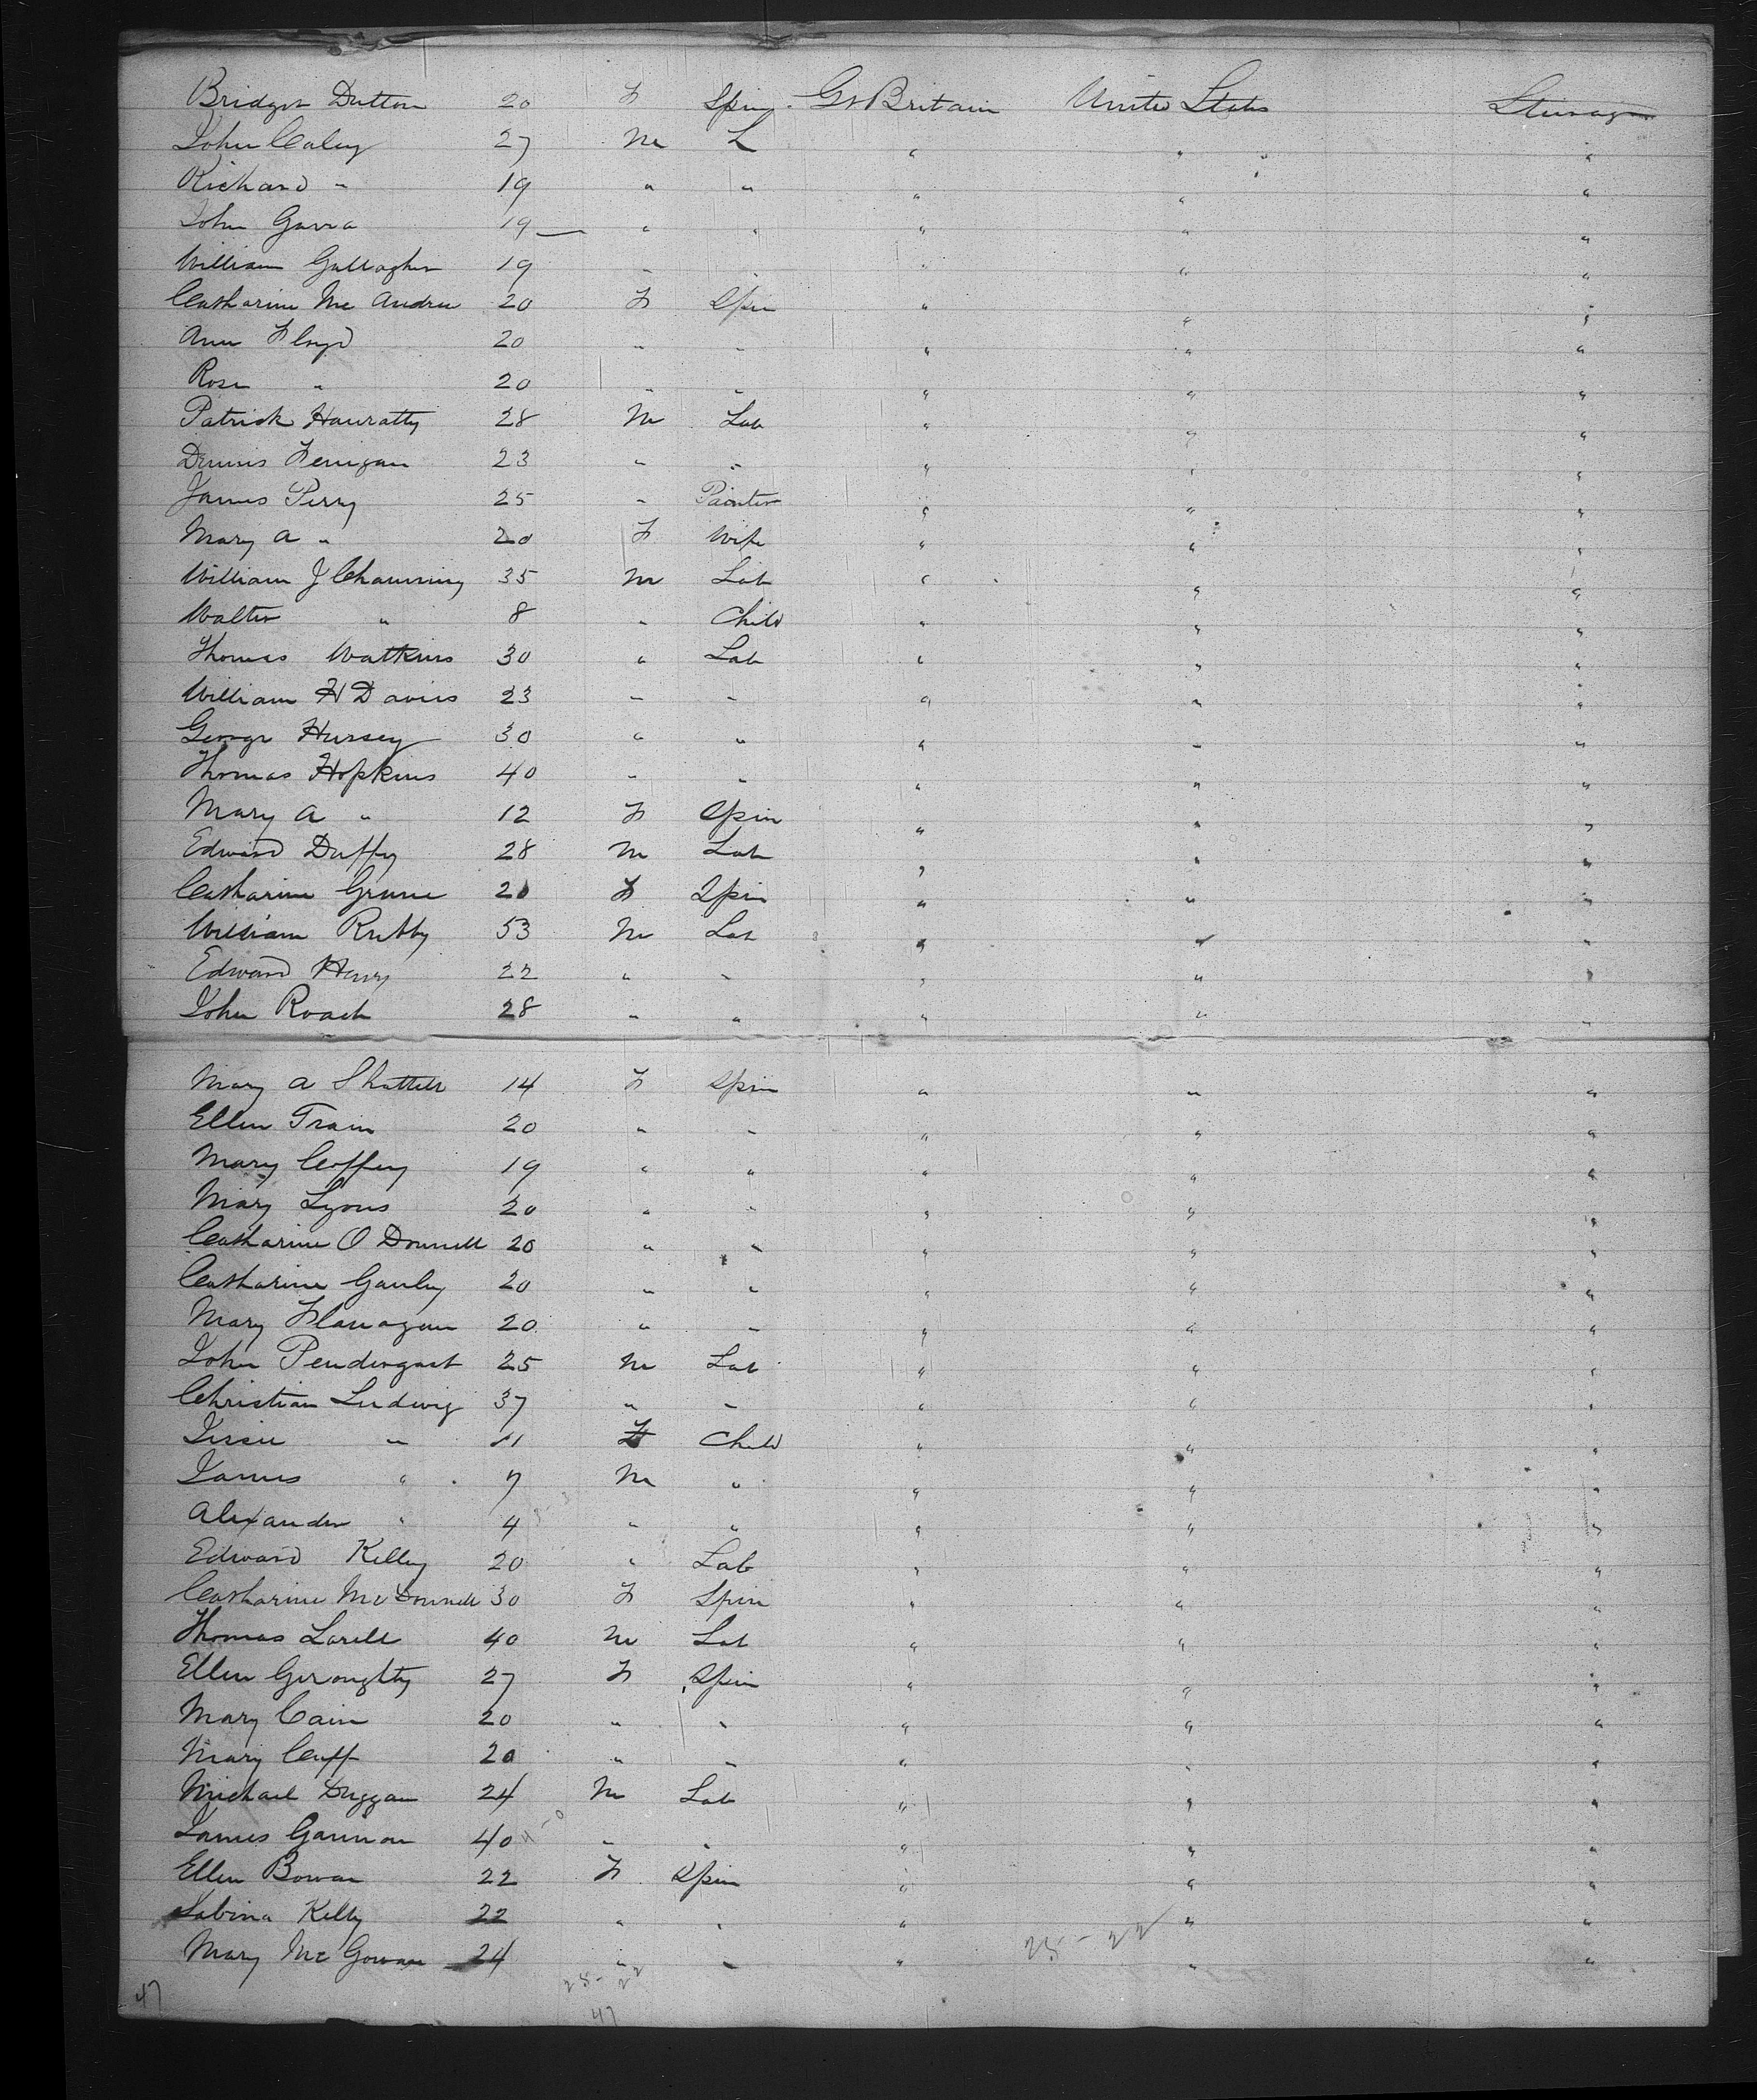 Bridget Dutton 20 F Spin Gt Britain United States Steerage
John Caley 27 M L " " "
Richard " 19 " " " " "
John Garra 19 " " " " "
William Gallagher 19 " " " " "
Catharine Mc Andrew 20 F Spin " " "
Ann Floyd 20 " " " " "
Rose " 20 " " " " "
Patrick Hanratty 28 M Lab " " "
Dennis Fenigan 23 " " " " "
James Perry 25 " Painter " " "
Mary A " 20 F Wife " " "
William J Channing 35 M Lab " " "
Walter " 8 " Child " " "
Thomas Watkins 30 " Lab " " "
William H Davies 23 " " " " "
George Hersey 30 " " " " "
Thomas Hopkins 40 " " " " "
Mary A " 12 F Spin " " "
Edward Duffy 28 M Lab " " "
Catharine 20 F Spin " " "
William 53 M Lab " " "
Edward 22 " " " " "
John Roach 28 " " " " "
Mary A 14 F Spin " " "
Ellen Train 20 " " " " "
Mary Coffey 19 " " " " "
Mary Lyons 20 " " " " "
Catharine O Donnell 20 " " " " "
Catharine Gauley 20 " " " " "
Mary Flanagan 20 " " " " "
John Pendergast 25 M Lab " " "
Christian Ludwig 37 " " " " "
" 11 F Child " " "
James " 7 M " " " "
Alexander " 4 " " " " "
Edward Kelly 20 " Lab " " "
Catharine Mc Donnell 30 F Spin " " "
Thomas Larell 40 M Lab " " "
Ellen Geroughty 27 F Spin " " "
Mary Cain 20 " " " " "
Mary Cuff 20 " " " " "
Michael Duggan 24 M Lab " " "
James Gannon 40 " " " " "
Ellen Bowan 22 F Spin " " "
Sabina Kelly 22 " " " " "
Mary Mc Gowan 24 " " " " "
25 - 22
25 - 22
47
47